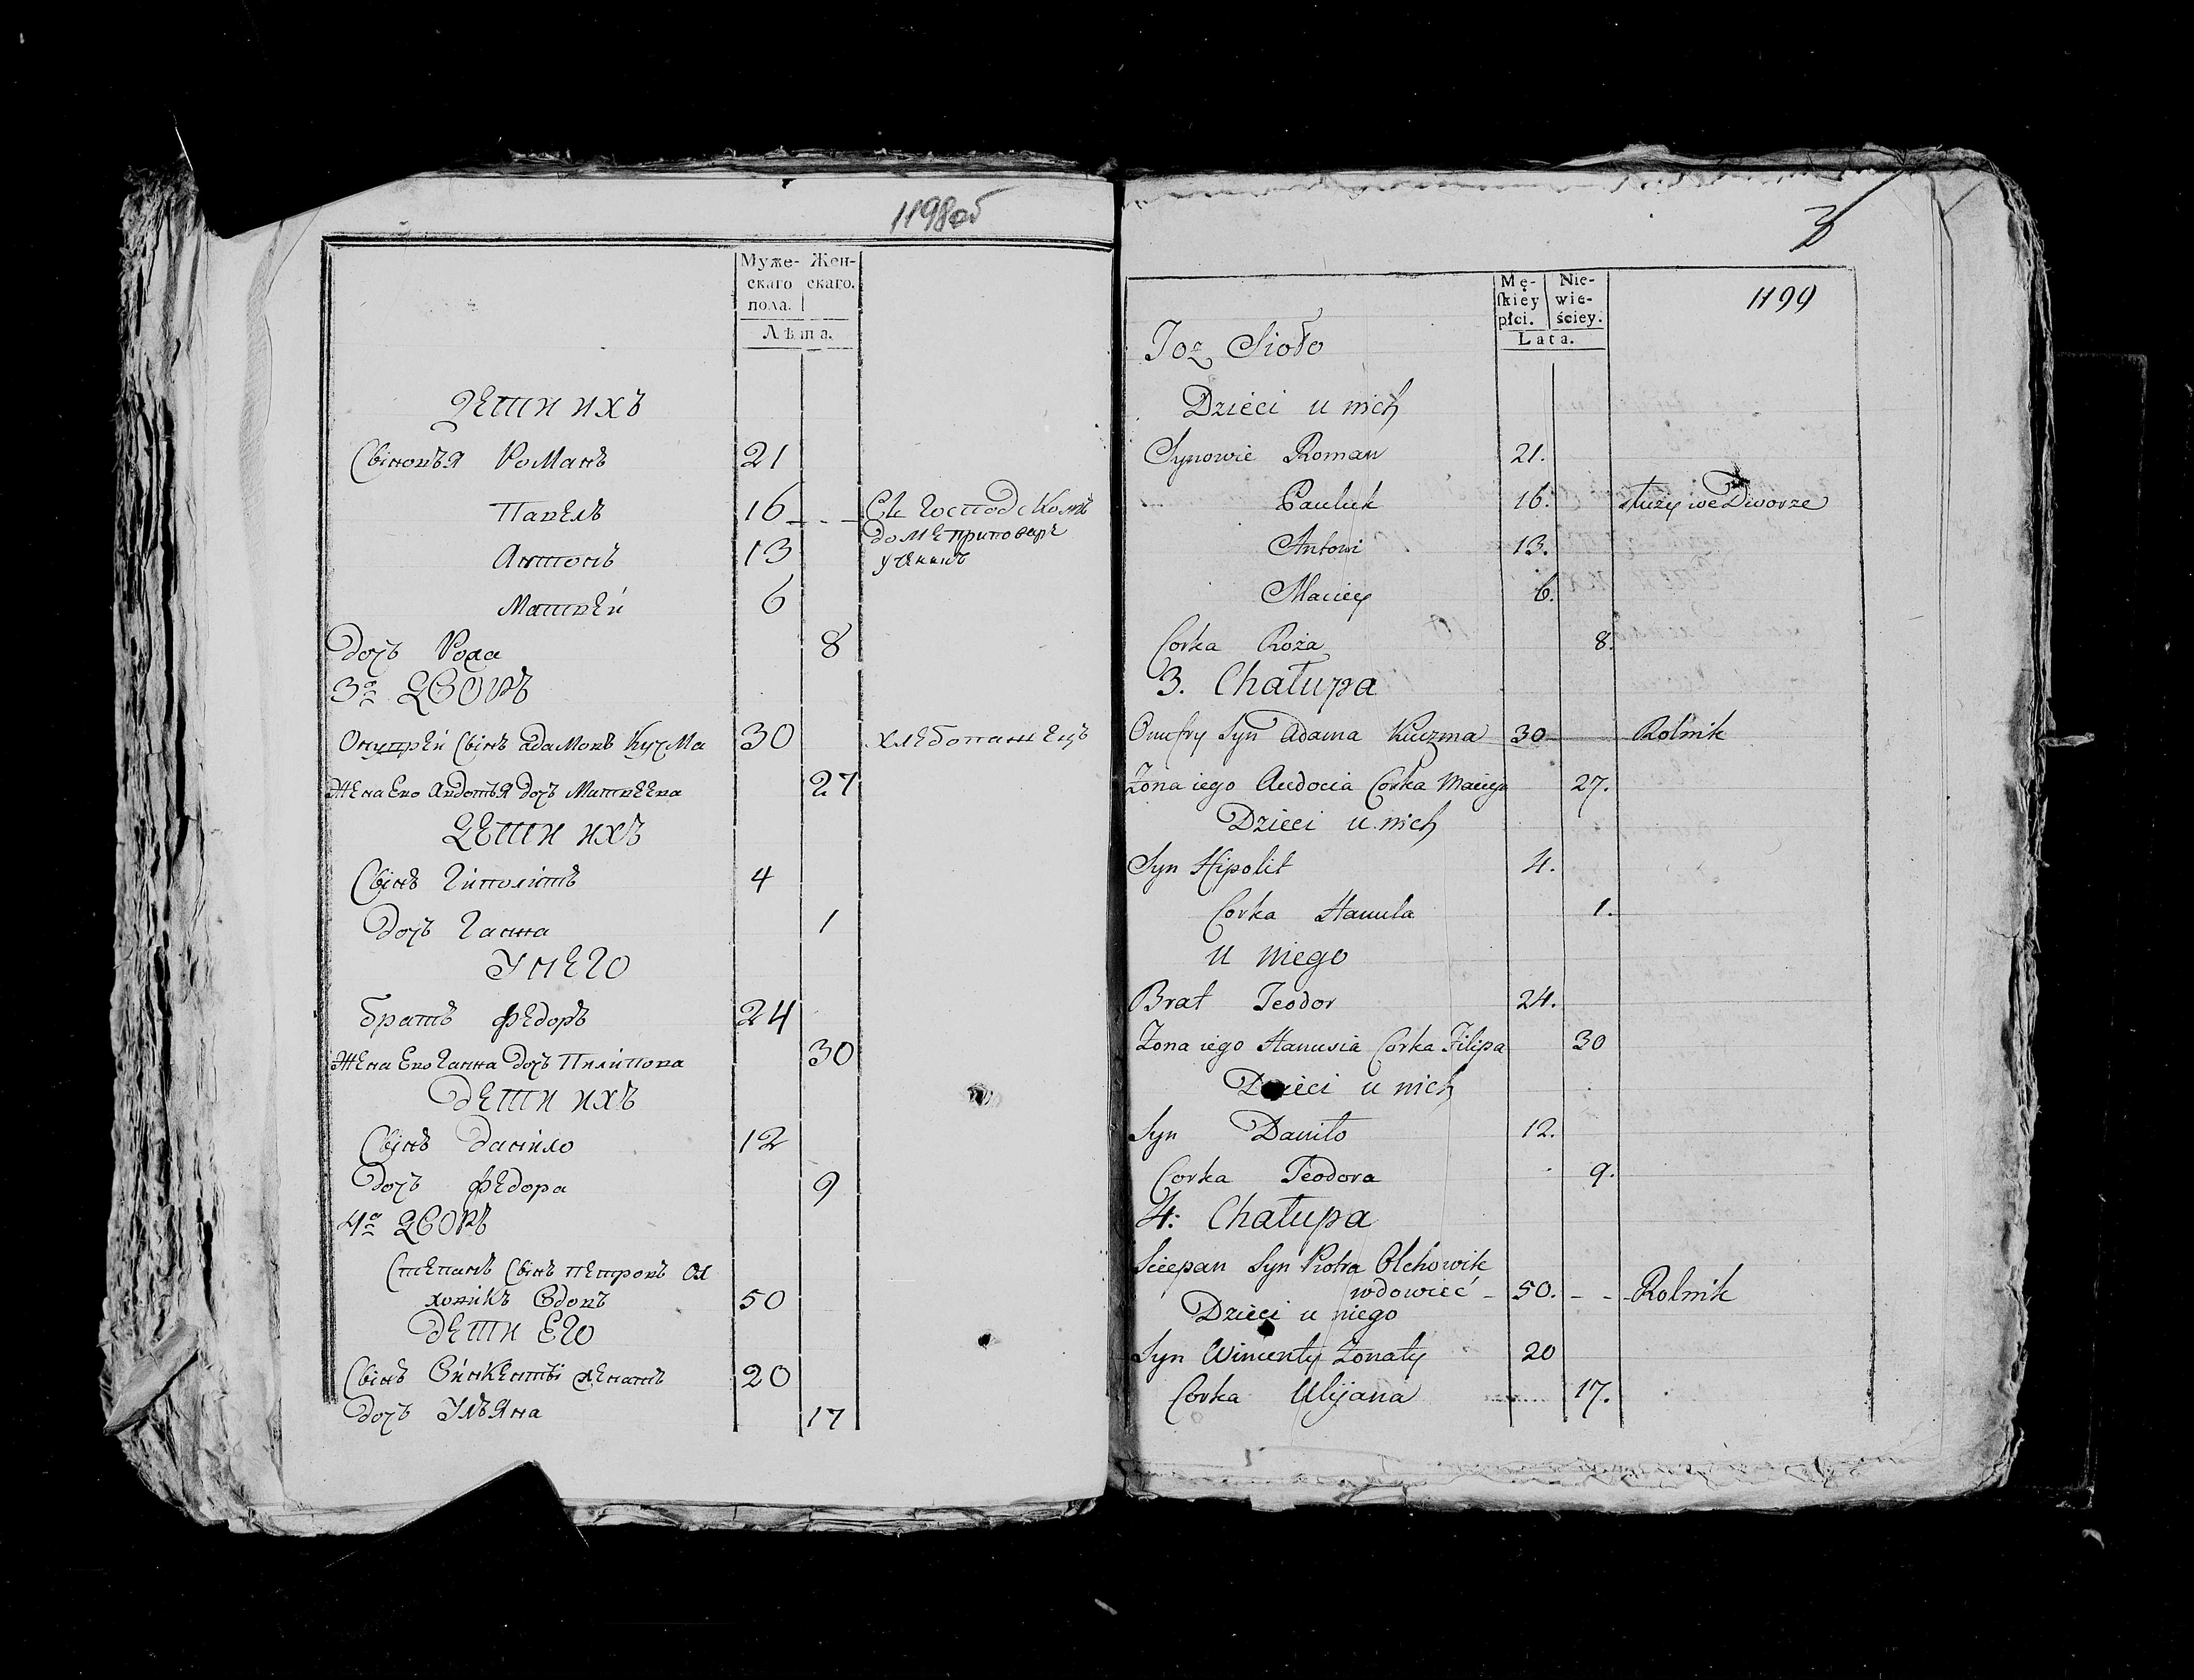 1198об
Муже- Жен-
скаго скаго.
пола.
Лѣта.
Дети ихъ
Сыновья Романъ 21
Павелъ 16 Въ Господскомъ
доме приповаре
Антонъ 13 ученикъ
Матвей 6
Дочь Роза 8
3й Дворъ
Онуфрей Сынъ Адамовъ Кузма 30 хлебопашецъ
Жена Ево Авдотья дочь Матвеева 27
Дети ихъ
Сынъ Гиполитъ 4
Дочь Ганна 1
У него
братъ Федоръ 24
Жена Ево Ганна дочь Пилипова 30
Дети ихъ
Сынъ Данило 12
Дочь Федора 9
4й Дворъ
Степанъ Сынъ Петровъ Ол
ховикъ Вдовъ 50
Дети Его
Сынъ Винкентый женатъ 20
Дочь Ульяна 17
3
1199
Mę- Nie-
skiey wie-
płci. ściey.
Lata.
Toz Sioło
Dzieci u nich
Synowie Roman 21.
Pauluk 16. służy we Dworze
Antoni 13.
Maciey 6.
Corka Roża 8.
3. Chałupa
Onufry Syn Adama Kuzma 30 Rolnik
Zona iego Audocia Corka Macieja 27.
Dzieci u nich
Syn Hipolit 4.
Corka Hanula 1.
u niego
Brat Teodor 24.
Zona iego Hanusia Corka Filipa 30
Dzieci u nich
Syn Daniło 12.
Corka Teodora 9.
4: Chałupa
Sciepan Syn Piotra Olchowik
wdowieć 50. Rolnik
Dzieci u niego
Syn Wincenty Zonaty 20
Corka Ulijana 17.